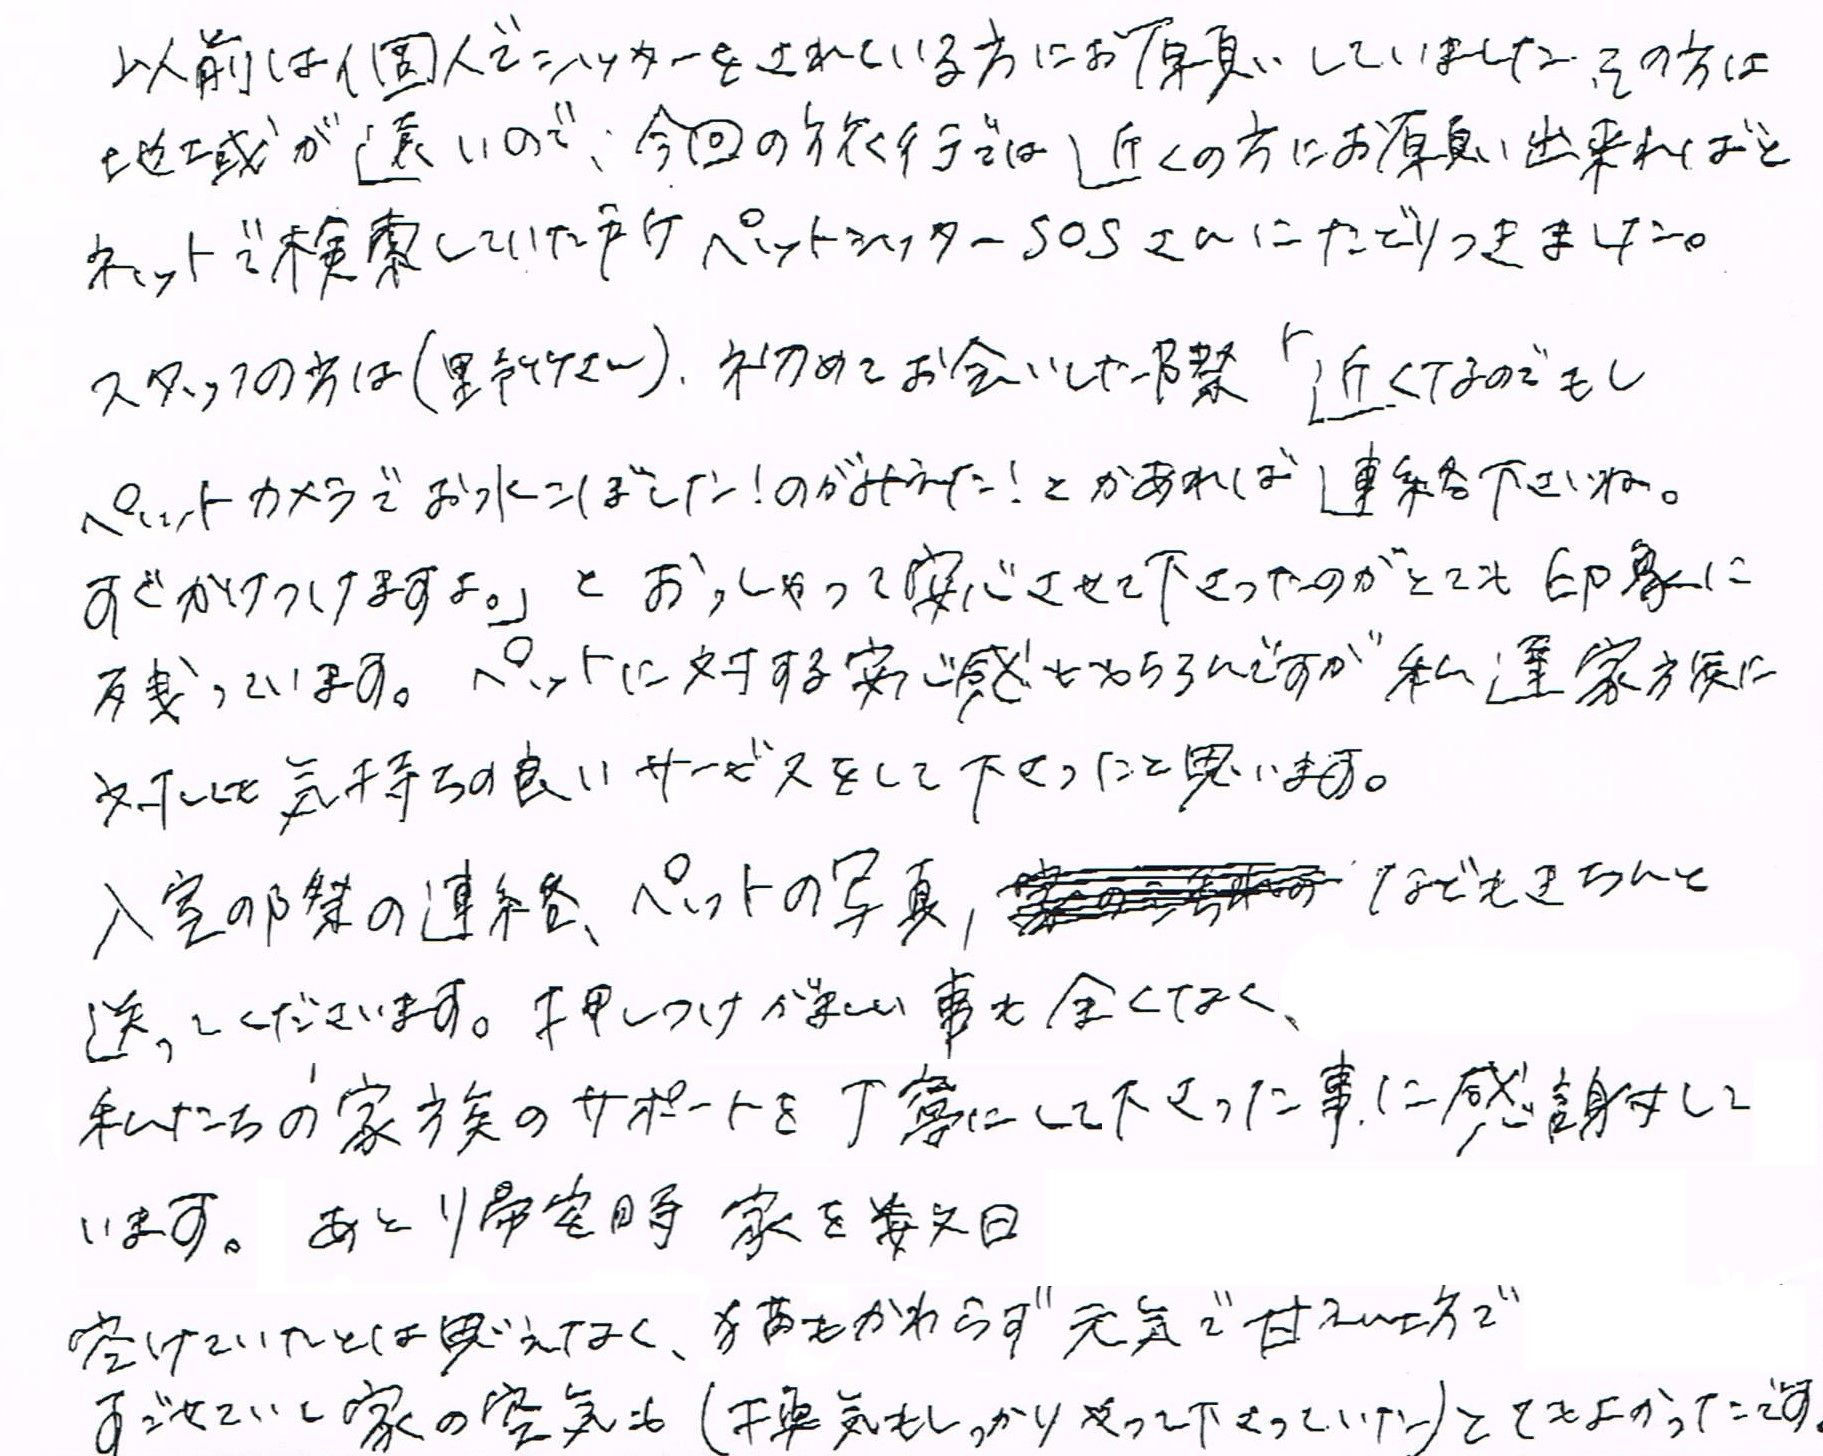 以前は個人でシッターをされている方にお願いしていました。その方は
地域が遠いので、今回の旅行では近くの方にお願い出来ればと
ネットで検索していた所ペットシッターSOSさんにたどりつきました。
スタッフの方は(星野さん)、初めてお会いした際「近くなのでもし
ペットカメラでお水こぼした!のがみえた!とかあれば連絡下さいね。
すぐかけつけますよ。」とおっしゃって安心させて下さったのがとても印象に
残っています。ペットに対する安心感ももちろんですが私達家族に
対しても気持ちの良いサービスをして下さったと思います。
入室の際の連絡、ペットの写真、などもきちんと
送ってくださいます。押しつけがましい事も全くなく、
私たちの家族のサポートを丁寧にして下さった事に感謝して
います。あと帰宅時家を数日
空けていたとは思えなく、猫もかわらず元気で甘えん坊で
すごせていし家の空気も(換気もしっかりやって下さっていた)とてもよかったです。